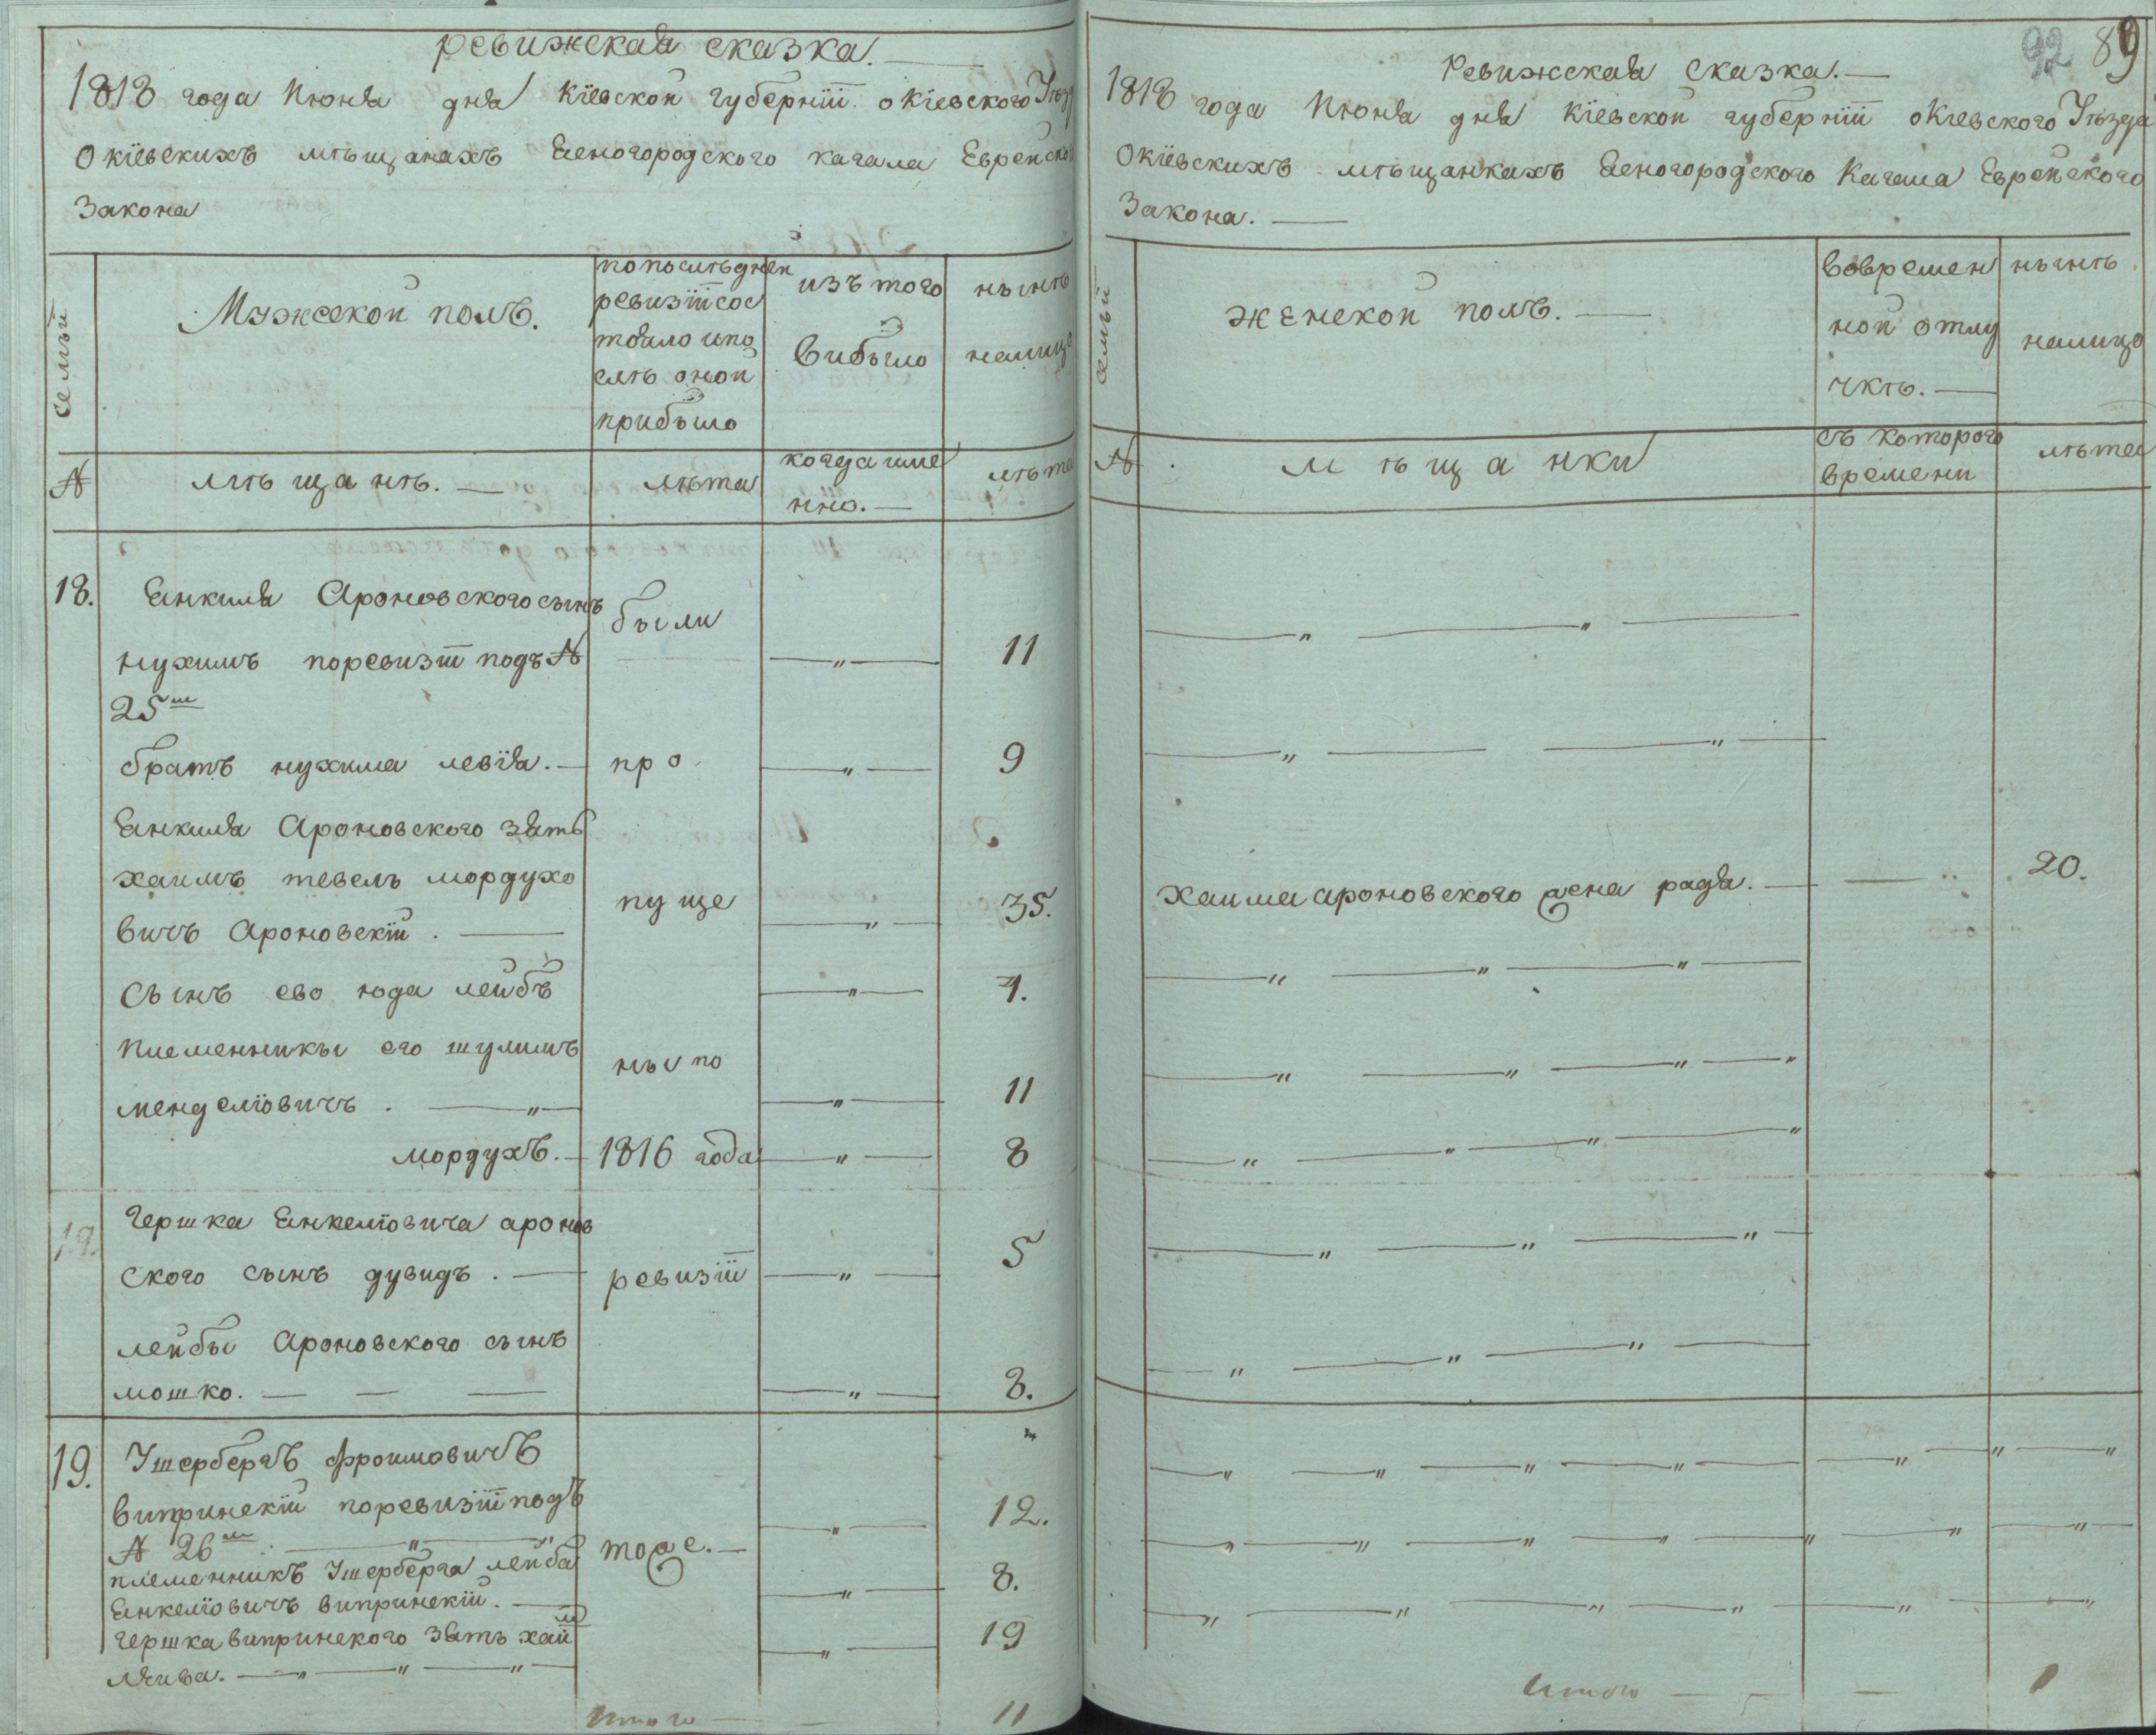 Ревижская сказка.
1818 года Июня дня Кіевской губерніи о Кіевского Уъзда
О Кіевскихъ мѣщанахъ Ясногородского кагала Еврейского
Закона
семьи
Мужеской полъ.
по послѣдней
ревизіи сос
тояло и по
слѣ оной
прибыло
изъ того
выбыло
нынѣ
налицо
№
мѣщанѣ.
лѣта
когда име
нно.
лѣта
18.
Янкиля Ароновского сынъ
нухимъ по ревизіи подъ №
25м
были
11
братъ нухима левія.
про
9
Янкиля Ароновского зять
хаимъ тевель мордухо
вичъ Ароновскій.
пуще
35.
сынъ ево юда лейбъ
1.
племенникы его шулимъ
менделіовичъ.
ны по
11
мордухъ.
1816 года
8
19.
Гершка Янкеліовича аронов
ского сынъ дувидъ.
ревизіи
5
лейбы Ароновского сынъ
мошко.
8.
19.
Ушербергъ фроимовичъ
випринскій по ревизіи подъ
№ 26м
12.
тоже.
племенникъ Ушерберга лейба
Янкеліовичъ випринскій.
8.
Гершка випринского зять хаим
19
Итого
11
92 89
Ревижская сказка.
1818 года Июня дня Кіевской губерніи о Кіевского Уъзда
О Кіевскихъ мѣщанкахъ Ясногородского Кагала Еврейского
Закона.
семьи
женской полъ.
вовремен
ной отлу
чкѣ.
нынѣ
налицо
№
мѣщанки
съ которого
времени
лѣта
Хаима ароновского жена радя.
20.
Итого
1